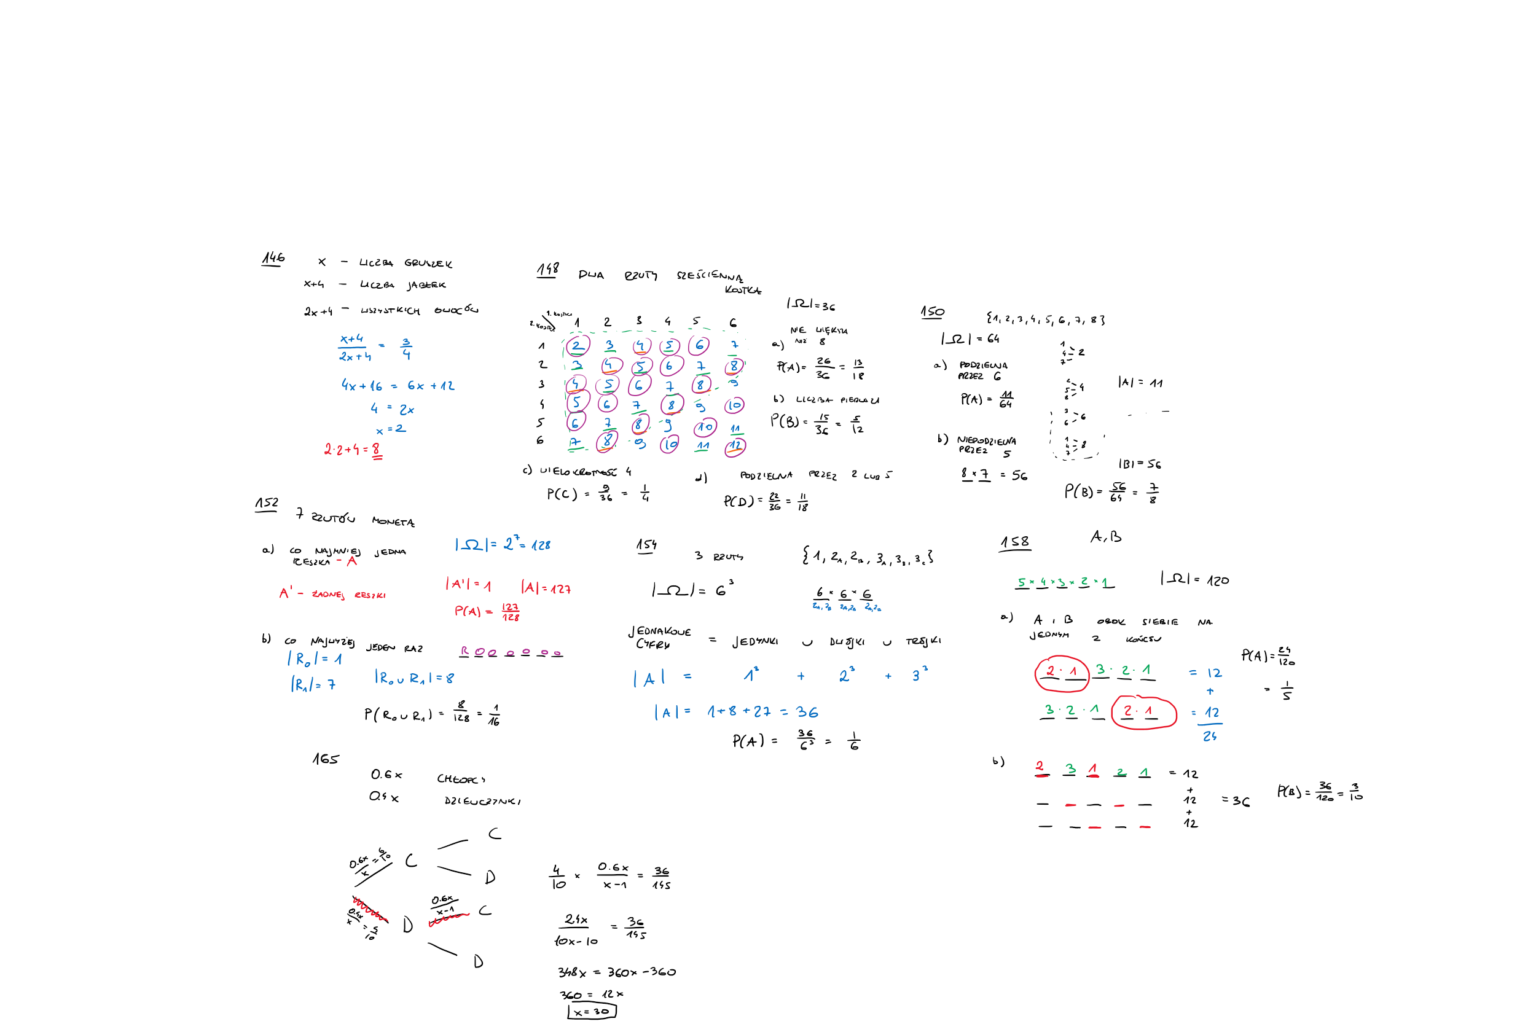 146
x - LICZBA GRUSZEK
x+4 - LICZBA JABŁEK
2x+4 - WSZYSTKICH OWOCÓW
x+4 / 2x+4 = 3/4
4x+16 = 6x+12
4 = 2x
x=2
2·2+4=8
148 DWA RZUTY SZEŚCIENNĄ KOSTKĄ
|Ω|=36
1 2 3 4 5 6
1 2 3 4 5 6 7
2 3 4 5 6 7 8
3 4 5 6 7 8 9
4 5 6 7 8 9 10
5 6 7 8 9 10 11
6 7 8 9 10 11 12
a) NIE WIĘKSZA NIŻ 8
P(A)= 26/36 = 13/18
b) LICZBA PIERWSZA
P(B)= 15/36 = 5/12
c) WIELOKROTNOŚĆ 4
P(C) = 9/36 = 1/4
d) PODZIELNA PRZEZ 2 LUB 5
P(D)= 22/36 = 11/18
150
{1,2,3,4,5,6,7,8}
|Ω|=64
a) PODZIELNA PRZEZ 6
P(A)= 11/64
|A|=11
b) NIEPODZIELNA PRZEZ 5
8 × 7 = 56
|B|=56
P(B)= 56/64 = 7/8
152
7 RZUTÓW MONETĄ
a) CO NAJMNIEJ JEDNA RESZKA - A
|Ω|= 2^7 = 128
A' - ŻADNEJ RESZKI
|A'|=1 |A|=127
P(A)= 127/128
b) CO NAJWYŻEJ JEDEN RAZ
R O O O O O O
|R₀|=1
|R₁|=7
|R₀∪R₁|=8
P(R₀∪R₁)= 8/128 = 1/16
154
3 RZUTY
{1, 2A, 2B, 3A, 3B, 3C}
|Ω|= 6³
6 × 6 × 6
JEDNAKOWE CYFRY = JEDYNKI ∪ DWÓJKI ∪ TRÓJKI
|A| = 1³ + 2³ + 3³
|A|= 1+8+27 = 36
P(A) = 36/6³ = 1/6
158
A,B
5 × 4 × 3 × 2 × 1
|Ω|=120
a) A i B OBOK SIEBIE NA JEDNYM Z KOŃCÓW
2·1 3·2·1 = 12
+
3·2·1 2·1 = 12
24
P(A)= 24/120 = 1/5
b) 2 3 1 2 1 = 12
+
12
+
12
= 36
P(B)= 36/120 = 3/10
165
0.6x CHŁOPCY
0.4x DZIEWCZYNKI
C
0.6x/x = 6/10 C
D
0.6x/x-1 C
D
D
4/10 × 0.6x/x-1 = 36/145
2.4x/10x-10 = 36/145
348x = 360x-360
360 = 12x
x=30